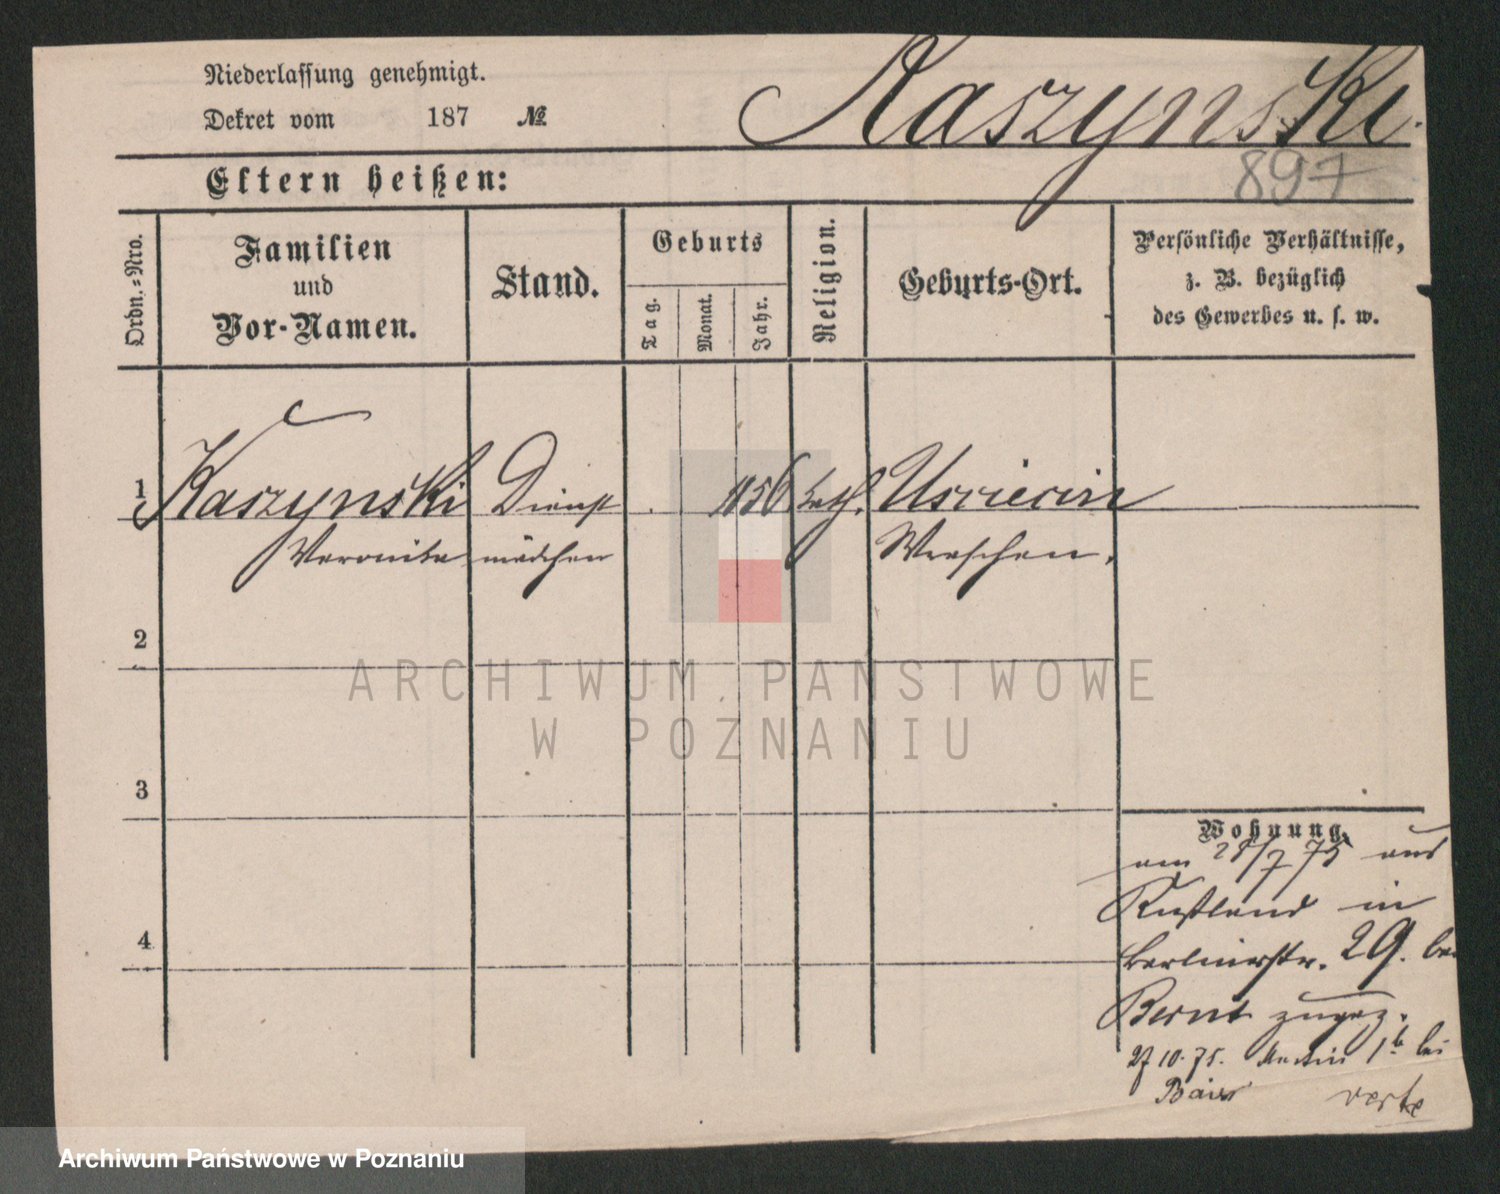 Niederlassung genehmigt.
Dekret vom 187 №
Kaszynski
897
Eltern heißen:
Ordn.-Nro.
Familien
und
Vor-Namen.
Stand.
Geburts
Tag.
Monat.
Jahr.
Religion.
Geburts-Ort.
Persönliche Verhältnisse,
z. B. bezüglich
des Gewerbes u. s. w.
1 Kaszynski Dienst 1856 kath.
Veronika mädchen Wreschen.
2
ARCHIWUM PAŃSTWOWE
W POZNANIU
3
Wohnung.
am 28/7 75 aus
Rußland in
Berlinerstr. 29. bei
Bernt zugez.
4
27 10. 75. Martin 1b bei
verte
Archiwum Państwowe w Poznaniu